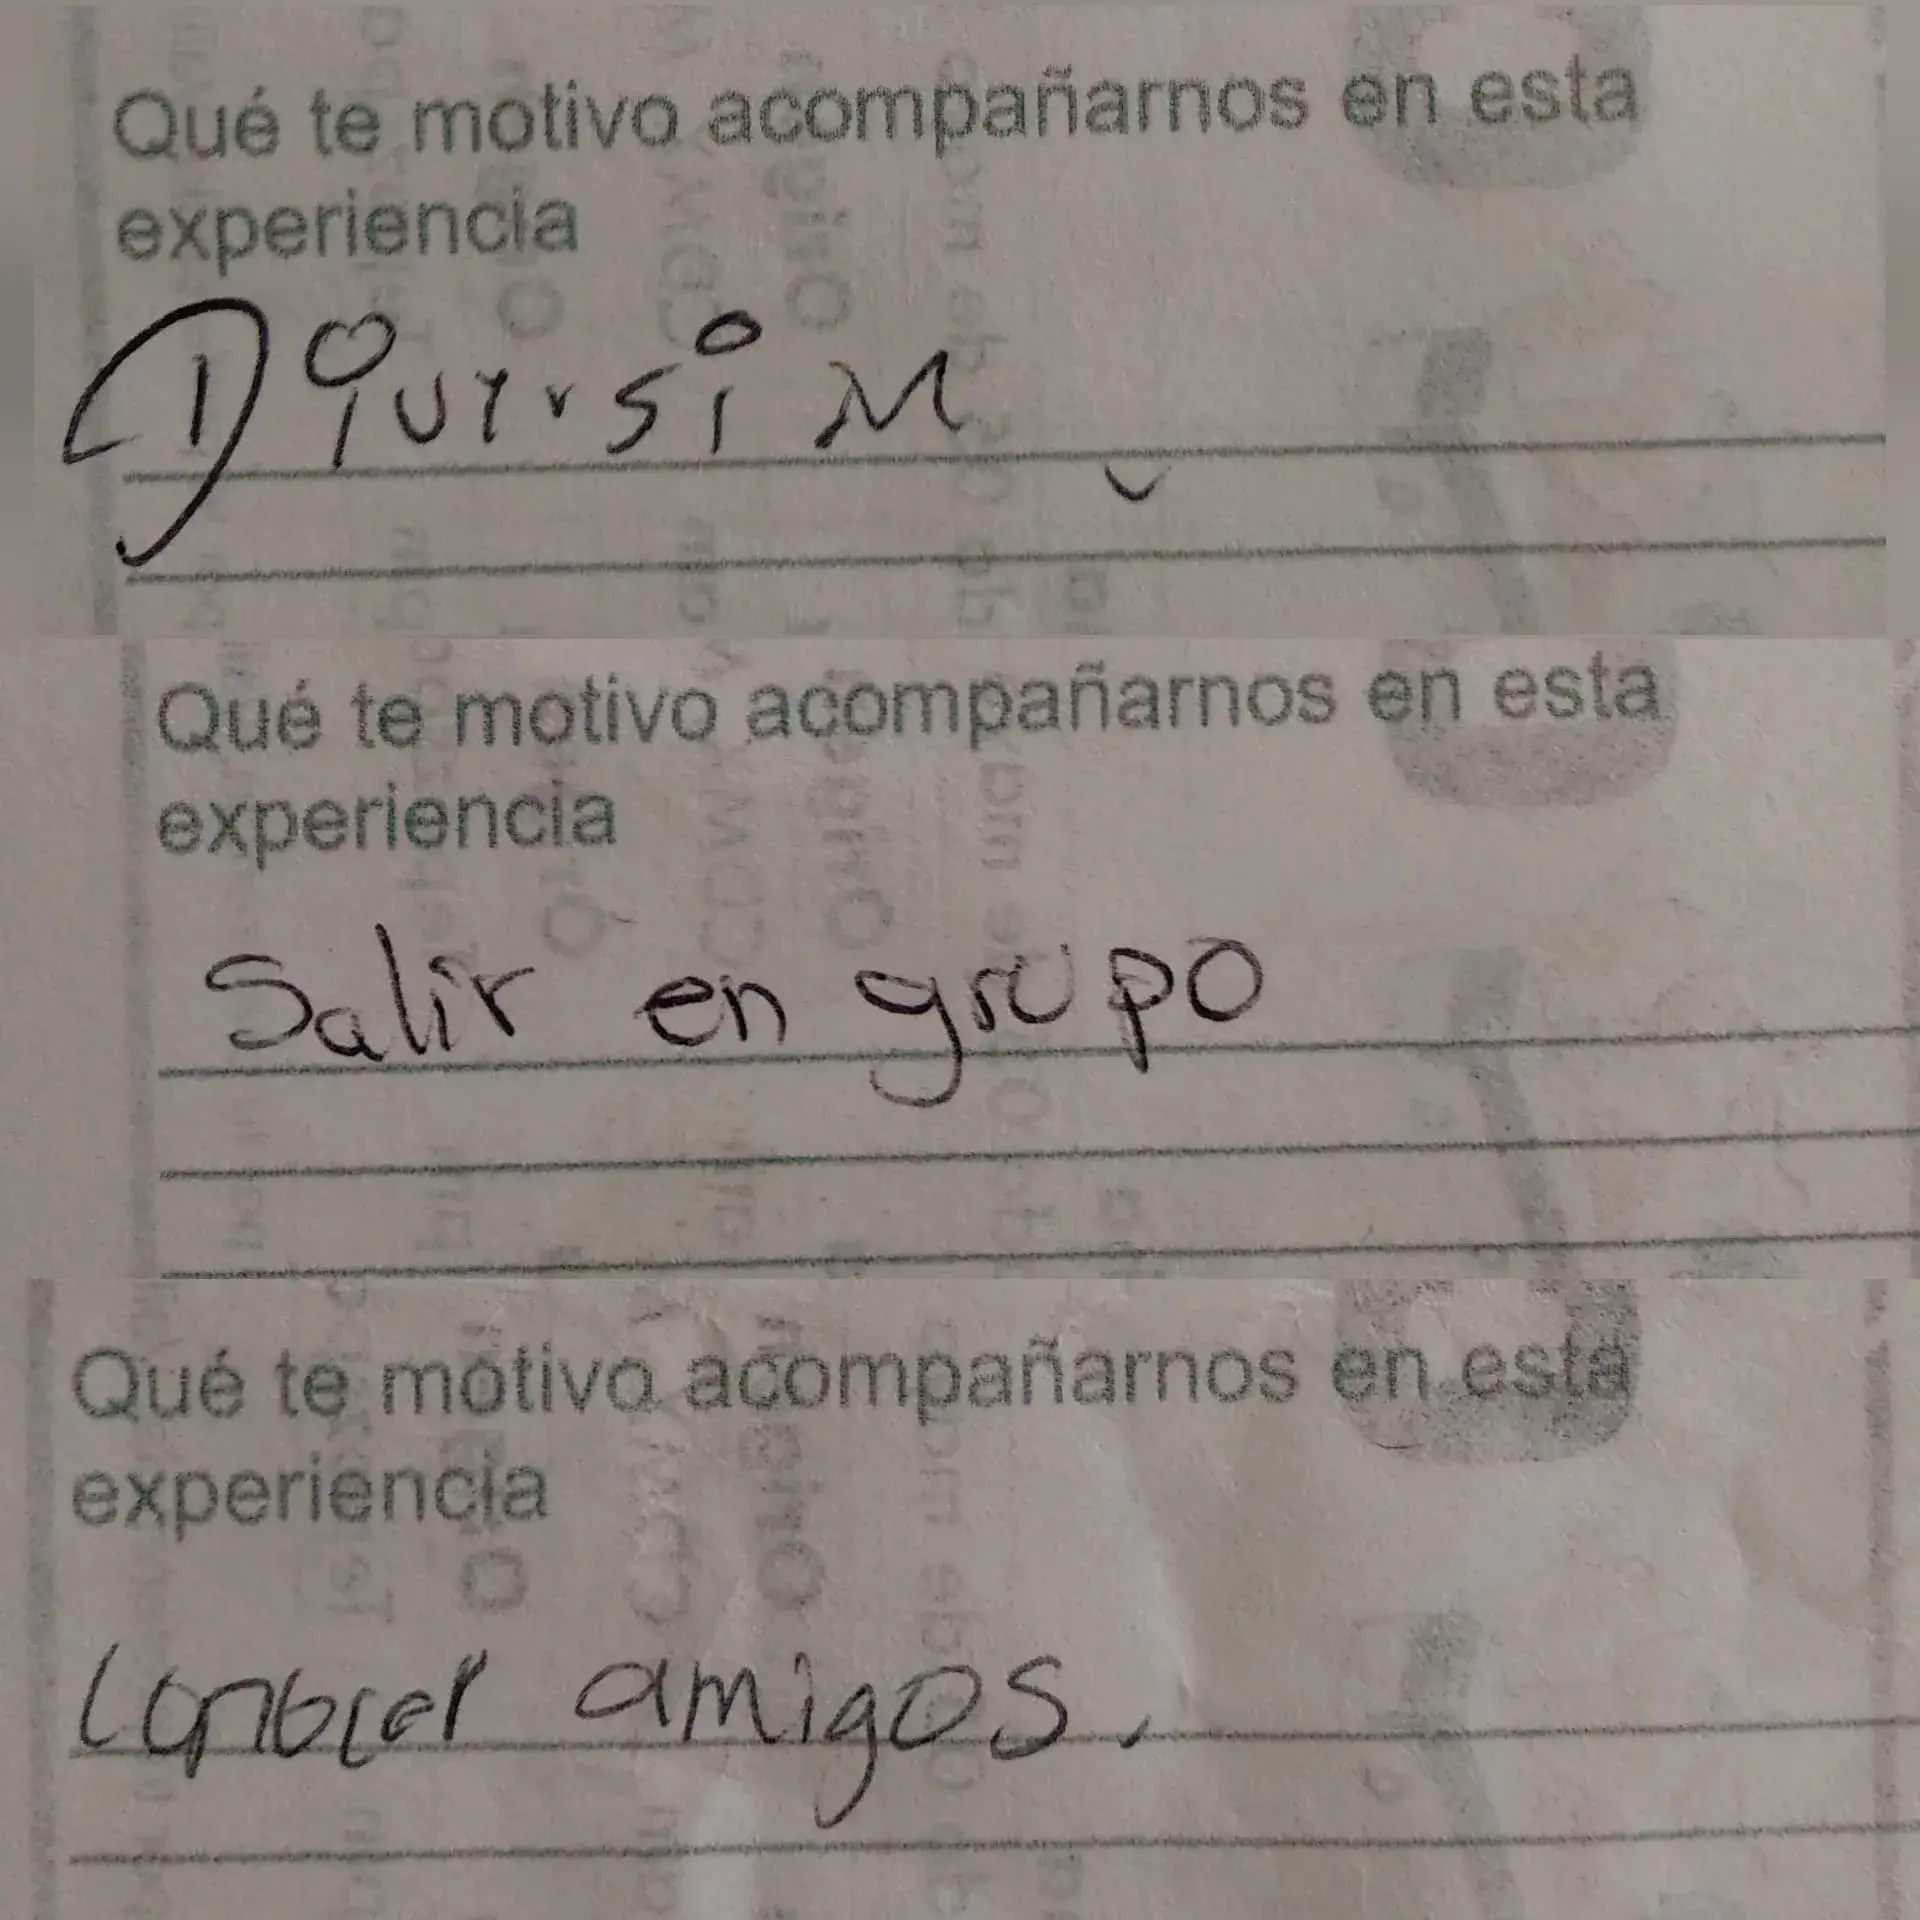 Qué te motivo acompañarnos en esta
experiencia
Qué te motivo acompañarnos en esta
experiencia
Salir en grupo
Qué te motivo acompañarnos en esta
experiencia
amigos.